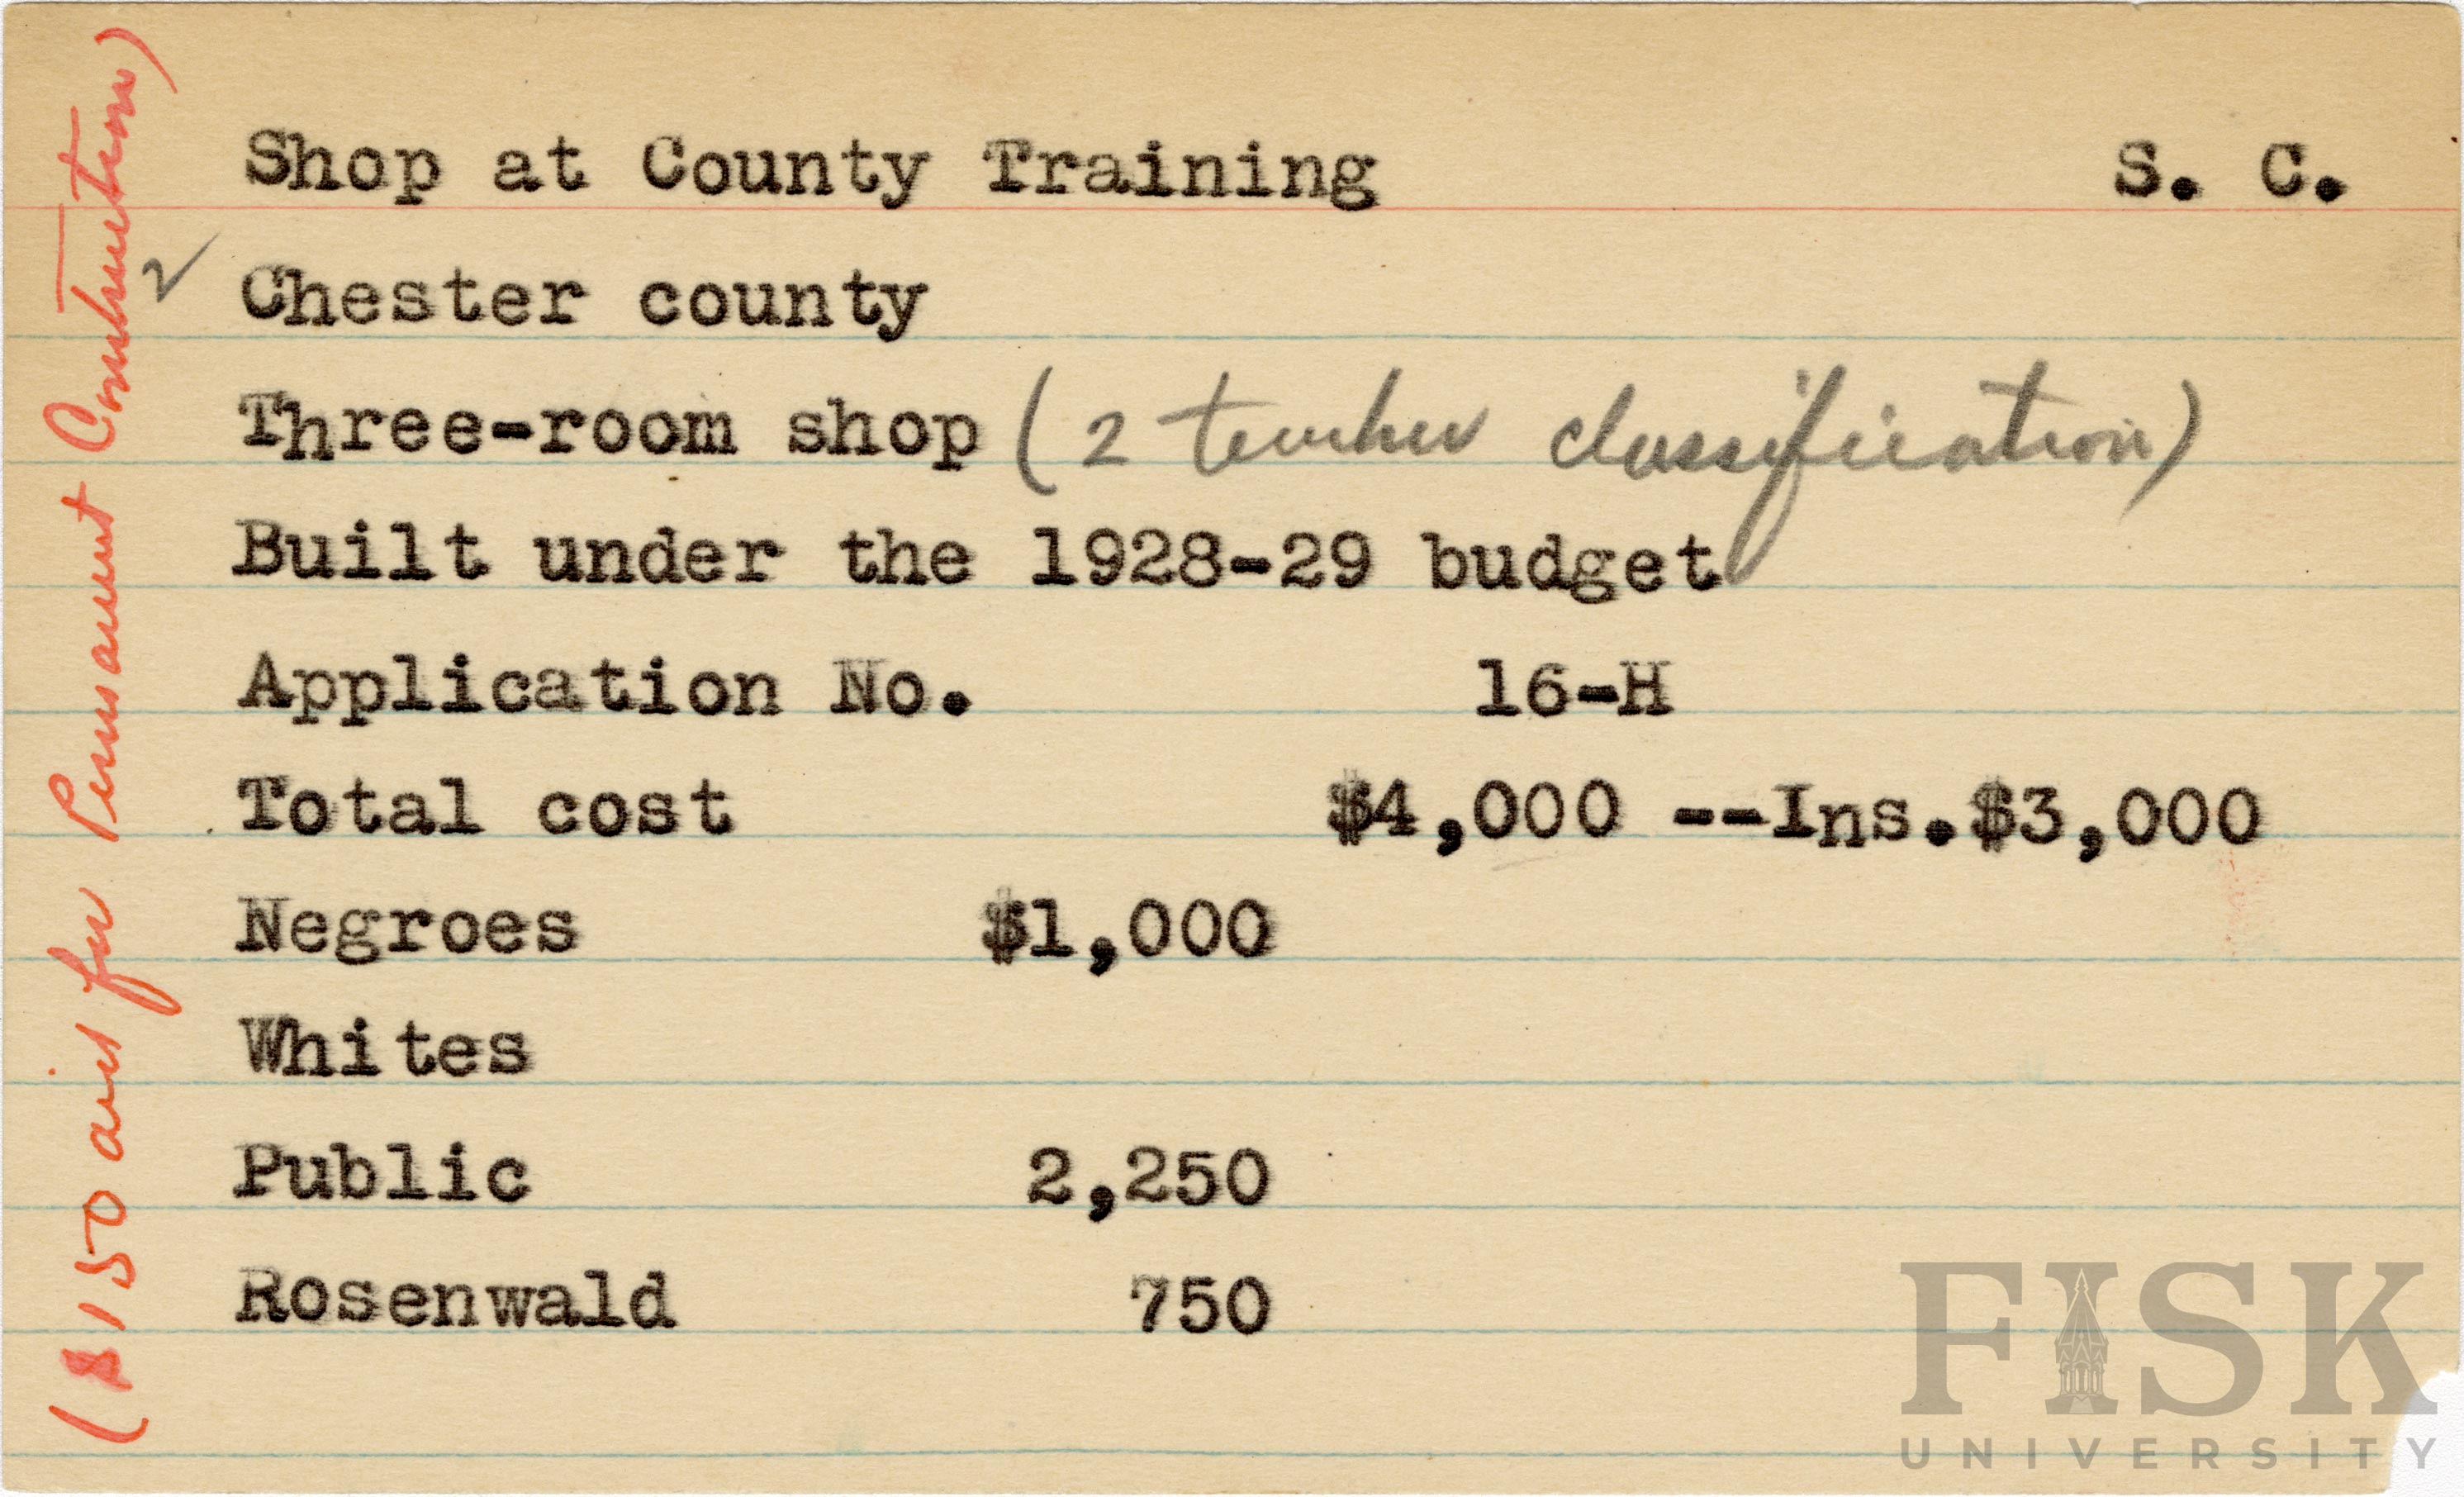 Shop at County Training S. C.
Chester county
Three-room shop (2 teacher classification)
Built under the 1928-29 budget
Application No. 16-H
Total cost $4,000 --Ins.$3,000
Negroes $1,000
Whites
Public 2,250
Rosenwald 750
($150 aid for Permanent Construction)
FISK
UNIVERSITY